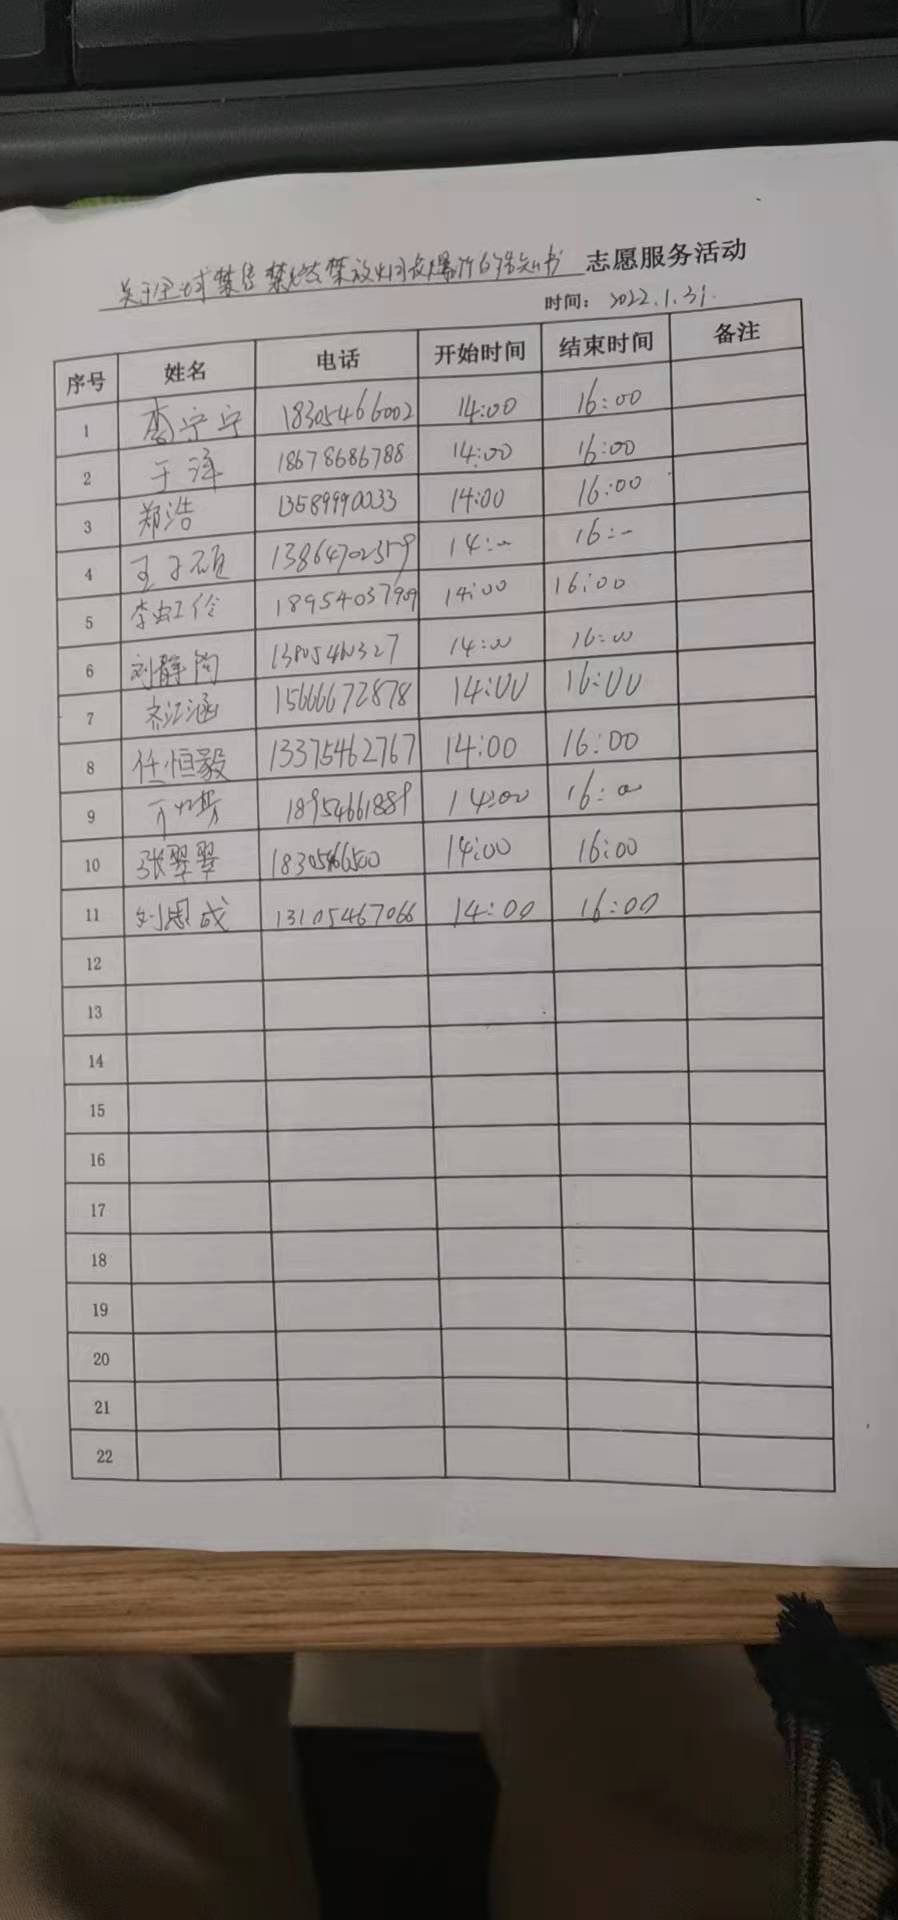 关于全域禁售禁燃禁放烟花爆竹的告知书 志愿服务活动
时间: 2022.1.31.
序号 姓名 电话 开始时间 结束时间 备注
1 宁宁 18305466002 14:00 16:00
2 于泽 18678686788 14:00 16:00
3 郑浩 13589990033 14:00 16:00
4 王子硕 13864702359 14:~ 16:~
5 李虹伶 18954037909 14:00 16:00
6 刘静 14:00 16:00
7 齐江涵 15666672878 14:00 16:00
8 任恒毅 13375462767 14:00 16:00
9 18954661889 14:00 16:00
10 张翠翠 18305466500 14:00 16:00
11 刘思成 13105467066 14:00 16:00
12
13
14
15
16
17
18
19
20
21
22